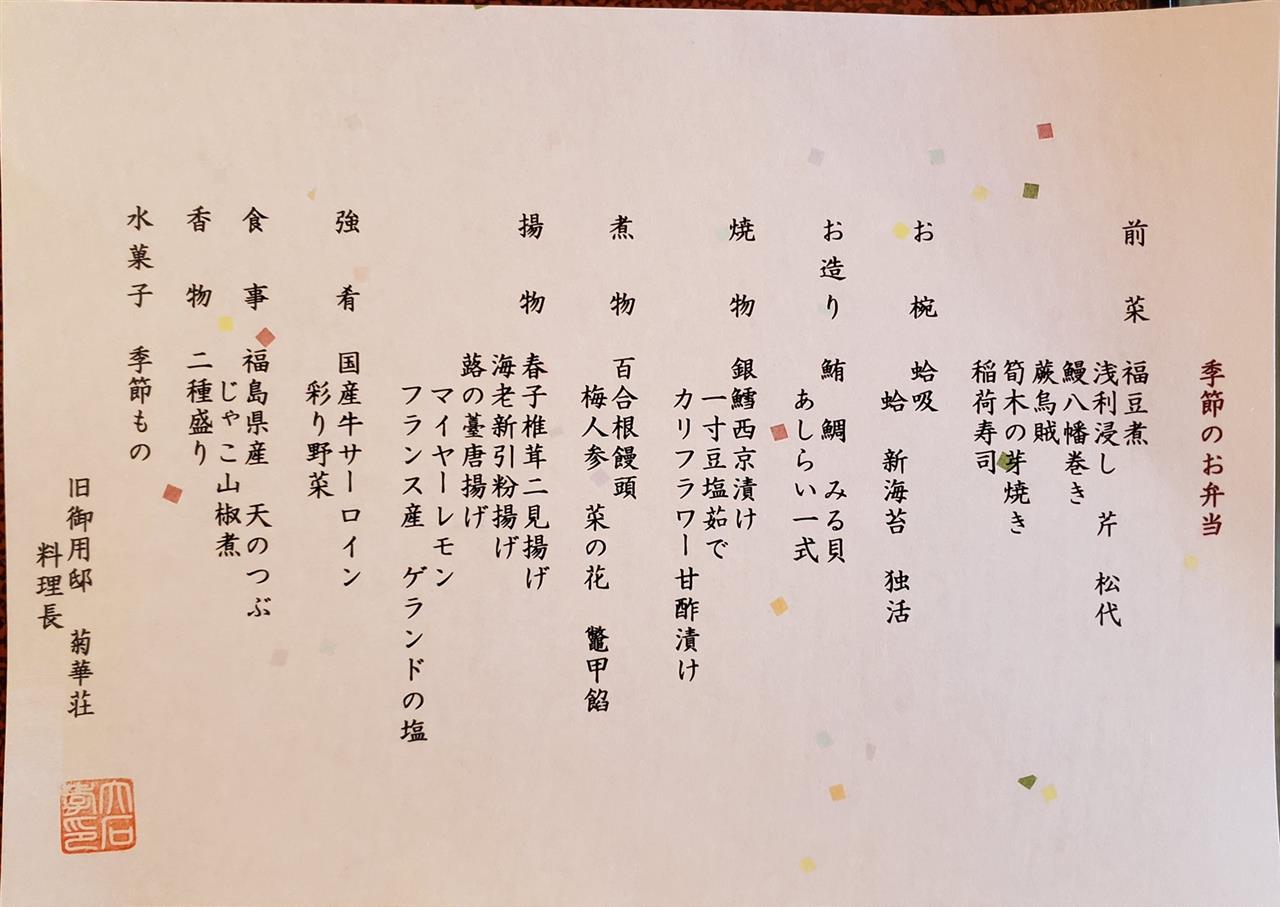 季節のお弁当
前菜 福豆煮
浅利浸し 芹 松代
鰻八幡巻き
蕨烏賊
筍木の芽焼き
稲荷寿司
お椀 蛤吸
蛤 新海苔 独活
お造り 鮪 鯛 みる貝
あしらい一式
焼物 銀鱈西京漬け
一寸豆塩茹で
カリフラワー甘酢漬け
煮物 百合根饅頭
梅人参 菜の花 鼈甲餡
揚物 春子椎茸二見揚げ
海老新引粉揚げ
蕗の薹唐揚げ
マイヤーレモン
フランス産 ゲランドの塩
強肴 国産牛サーロイン
彩り野菜
食事 福島県産 天のつぶ
じゃこ山椒煮
香物 二種盛り
水菓子 季節もの
旧御用邸 菊華荘
料理長
大石